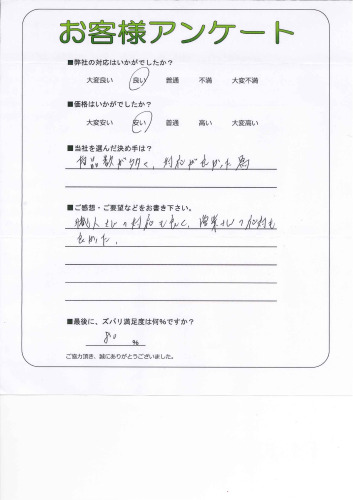 お客様アンケート
■弊社の対応はいかがでしたか?
大変良い 良い 普通 不満 大変不満
■価格はいかがでしたか?
大変安い 安い 普通 高い 大変高い
■当社を選んだ決め手は?
商品数が多く、対応が良かった為
■ご感想・ご要望などをお書き下さい。
職人さんの対応も良く、営業さんの対応も
良かった。
■最後に、ズバリ満足度は何%ですか?
80 %
ご協力頂き、誠にありがとうございました。